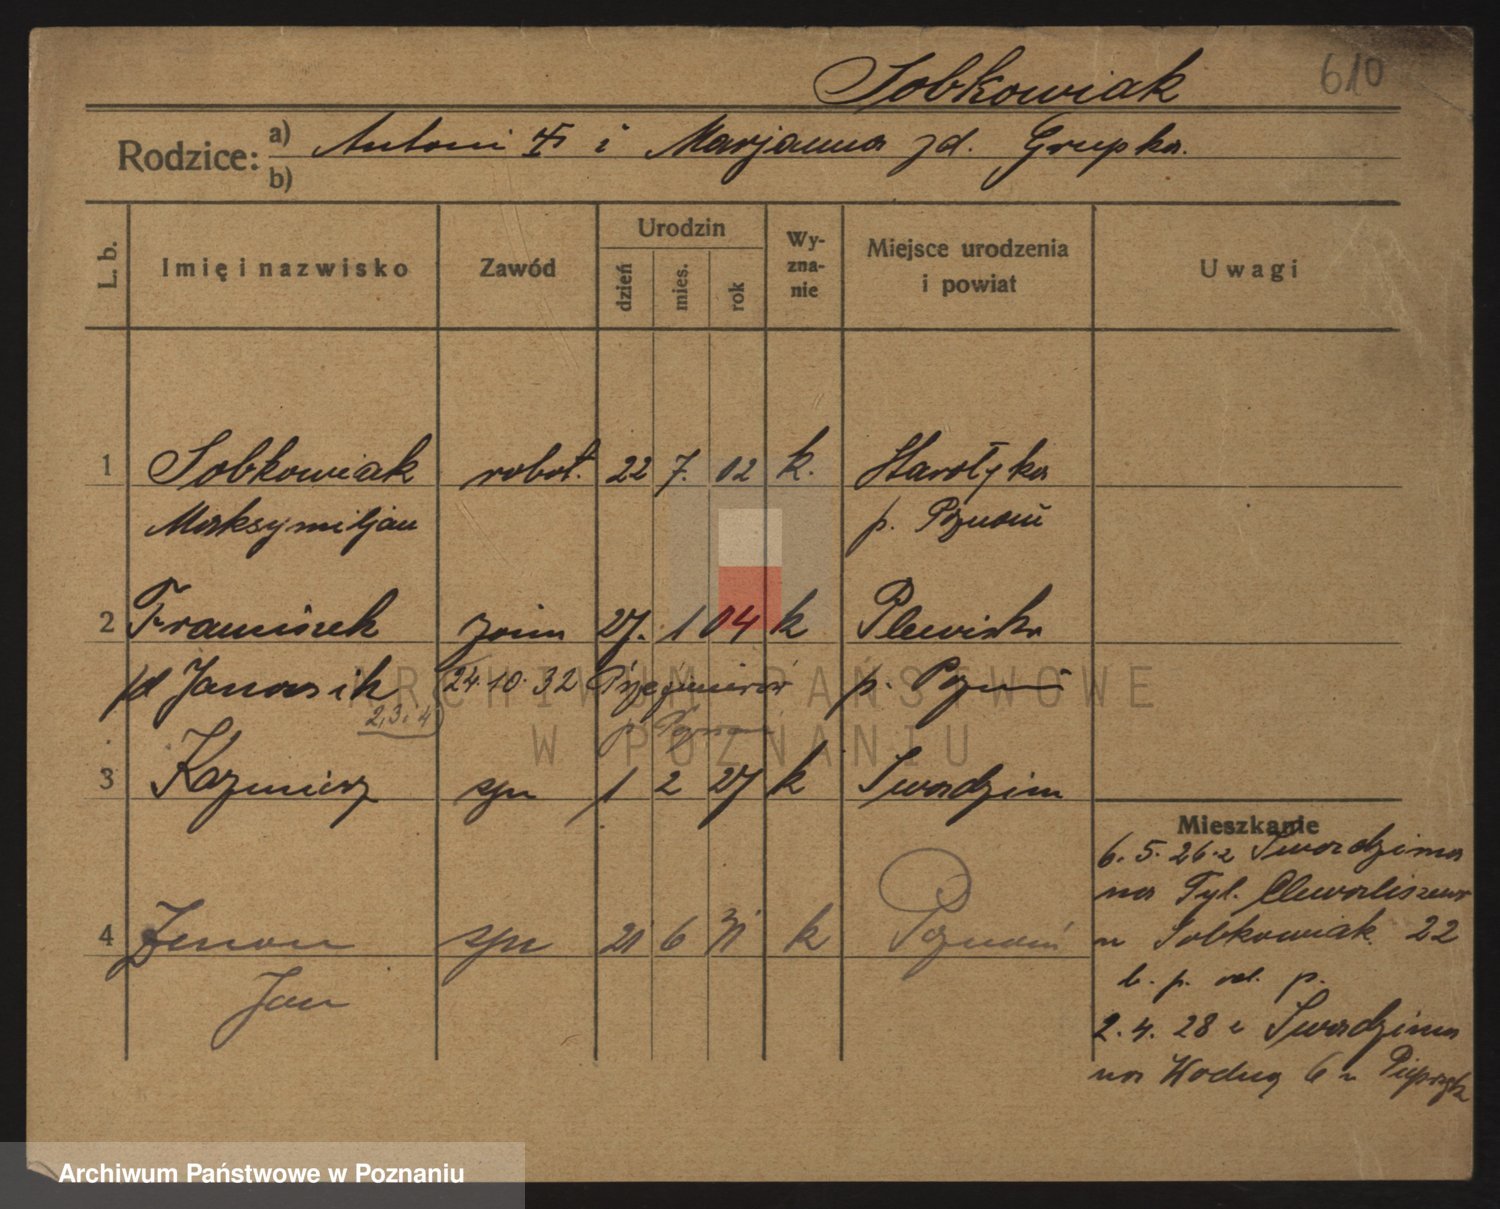 Sobkowiak 610
Rodzice: a) Antoni i Marjanna zd. Grupka.
b)
L. b. Imię i nazwisko Zawód Urodzin dzień mies. rok Wy-zna-nie Miejsce urodzenia i powiat Uwagi
1 Sobkowiak robot. 22 7. 02 k. Starołęka
Maksymiljan p. Poznań
2 Franciszek żona 27. 1 04 k Plewiska
zd Janasik 24.10.32 p. Pozn
2, 3, 4
3 Kazmierz syn 1 2 27 k Swadzim
Mieszkanie
6. 5. 26 z Swadzima
na Tyl. Chwaliszewo
u Sobkowiak 22
4 Zenon syn 21 6 31 k Poznań
Jan
b. p. od. p.
2. 4. 28 z Swadzima
na Wodną 6 u
ARCHIWUM PAŃSTWOWE
W POZNANIU
Archiwum Państwowe w Poznaniu